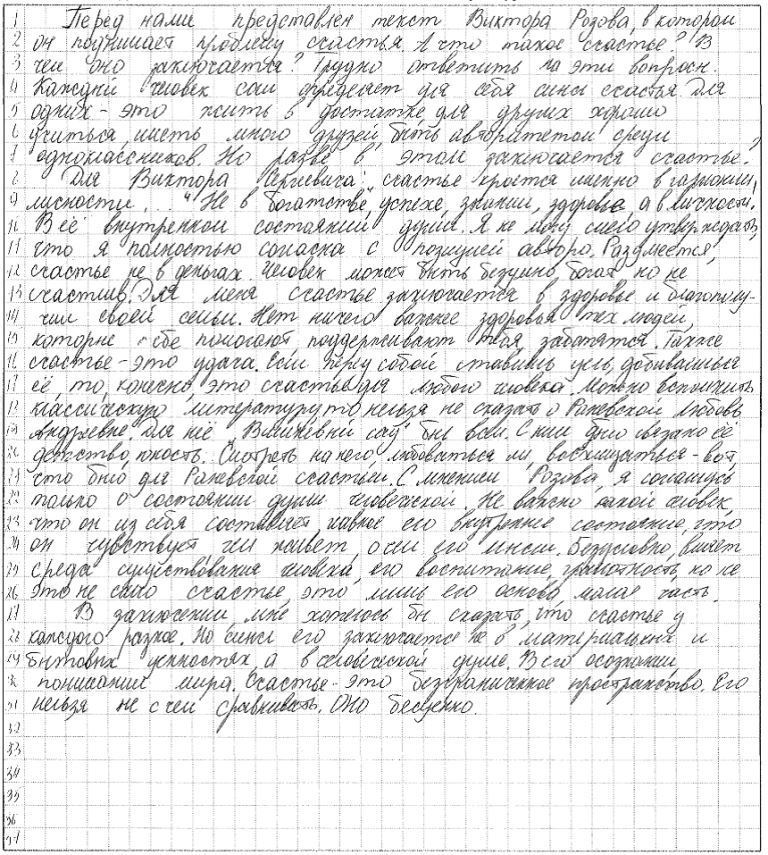 1 Перед нами представлен текст Виктора Розова, в котором
2 он поднимает проблему счастья. А что такое счастье? В
3 чем оно заключается? Трудно ответить на эти вопросы.
4 Каждый человек сам определяет для себя смысл счастья. Для
5 одних - это жить в достатке, для других хорошо
6 учиться, иметь много друзей, быть авторитетом среди
7 одноклассников. Но разве в этом заключается счастье?
8 Для Виктора Сергеевича счастье кроется именно в гармонии,
9 личности... "Не в богатстве, успехе, знании, здоровье, а в личности.
10 В её внутренном состоянии, души. Я не могу смело утверждать,
11 что я полностью согласна с позицией автора. Разумеется,
12 счастье не в деньгах. Человек может быть безумно богат, но не
13 счастлив. Для меня счастье заключается в здоровье и благополу-
14 чии своей семьи. Нет ничего важнее здоровья тех людей,
15 которые тебе помогают, поддерживают тебя, заботятся. Также
16 счастье - это удача. Если перед собой ставишь цель, добиваешься
17 её, то, конечно, это счастье для любого человека. Можно вспомнить
18 классическую литературу, то нельзя не сказать о Раневской Любовь
19 Андреевне. Для неё "Вишнёвый сад" был всем. С ним было связано её
20 детство, юность. Смотреть на него, любоваться им, восхищаться - вот,
21 что было для Раневской счастьем. С мнением Розова, я соглашусь
22 только о состоянии души человеческой. Не важно, какой человек,
23 что он из себя составляет, главное его внутреннее состояние, что
24 он чувствует чем живет, о чем его мысли. Безусловно, влияет
25 среда существования человека, его воспитание, грамотность, но не
26 это не само счастье, это лишь его основа, малая часть.
27 В заключении мне хотелось бы сказать, что счастье у
28 каждого разное. Но смысл его заключается не в материальных и
29 бытовых ценностях, а в человеческой душе. В его осознании,
30 понимании мира. Счастье - это безграниченное пространство. Его
31 нельзя не с чем сравнивать. Оно бесценно.
32
33
34
35
36
37